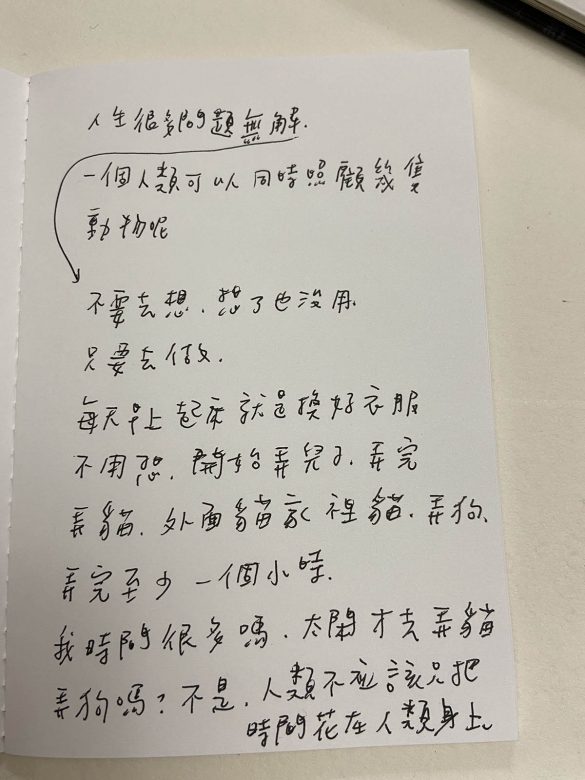 人生很多問題無解.
一個人類可以同時照顧幾隻
動物呢
不要去想.想了也沒用.
只要去做.
每天早上起床就是換好衣服
不用想.開始弄兒子.弄完
弄貓.外面貓家裡貓.弄狗、
弄完至少一個小時.
我時間很多嗎.太閒才去弄貓
弄狗嗎?不是.人類不應該只把
時間花在人類身上.